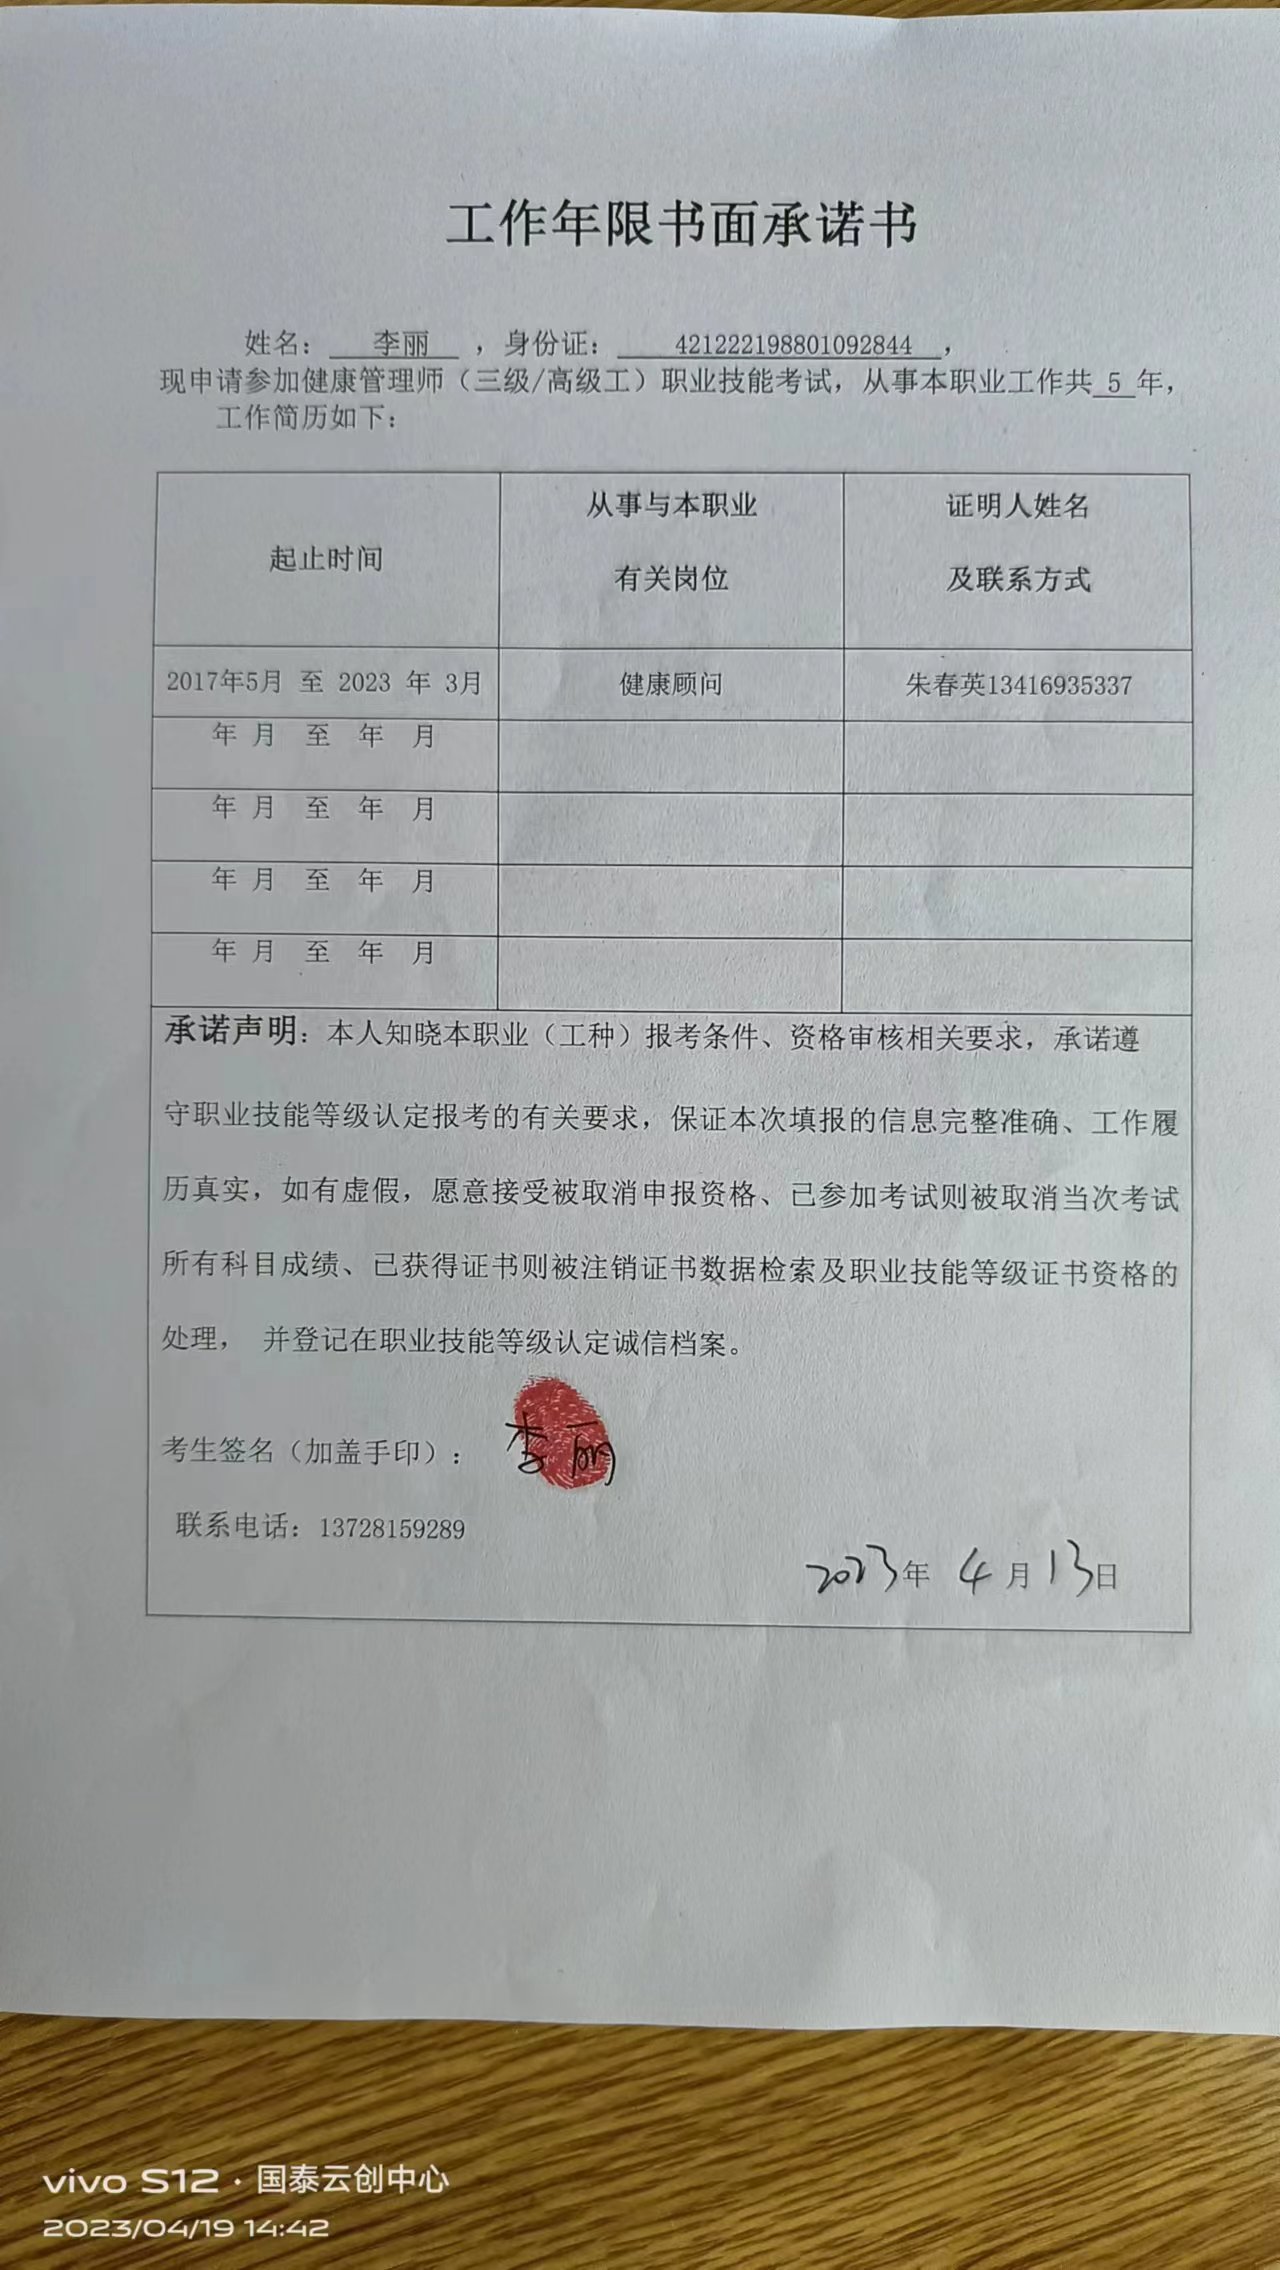 工作年限书面承诺书
姓名： 李丽 ，身份证： 421222198801092844 ，
现申请参加健康管理师（三级/高级工）职业技能考试，从事本职业工作共 5 年，
工作简历如下：
起止时间
从事与本职业
有关岗位
证明人姓名
及联系方式
2017年5月 至 2023 年 3月 健康顾问 朱春英13416935337
年 月 至 年 月
年 月 至 年 月
年 月 至 年 月
年 月 至 年 月
承诺声明：本人知晓本职业（工种）报考条件、资格审核相关要求，承诺遵
守职业技能等级认定报考的有关要求，保证本次填报的信息完整准确、工作履
历真实，如有虚假，愿意接受被取消申报资格、已参加考试则被取消当次考试
所有科目成绩、已获得证书则被注销证书数据检索及职业技能等级证书资格的
处理， 并登记在职业技能等级认定诚信档案。
考生签名（加盖手印）： 李丽
联系电话：13728159289
2023年 4月13日
vivo S12 · 国泰云创中心
2023/04/19 14:42